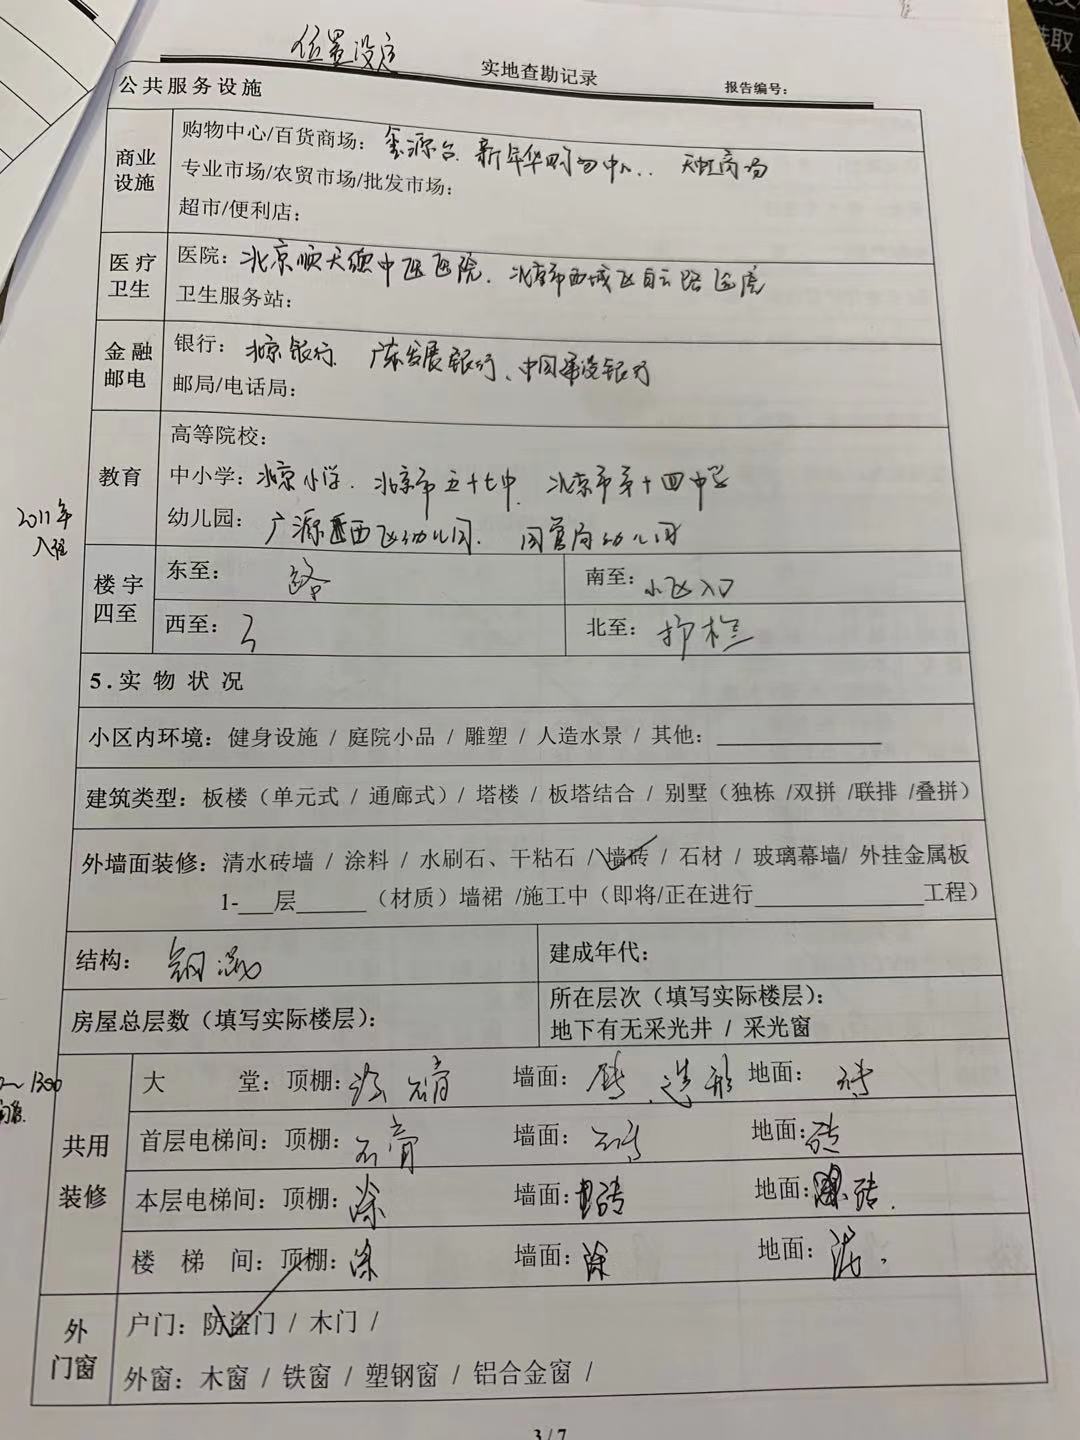 位置没定
实地查勘记录
报告编号：
公共服务设施
商业设施
购物中心/百货商场：金源台．新年华购物中心．．天虹商场
专业市场/农贸市场/批发市场：
超市/便利店：
医疗卫生
医院：北京顺天德中医医院．北京市西城区自云路医院
卫生服务站：
金融邮电
银行：北京银行．广东发展银行、中国建设银行
邮局/电话局：
教育
高等院校：
中小学：北京小学．北京市五十七中．北京市第十四中学
幼儿园：广源西区幼儿园．国管局幼儿园
2011年入住
楼宇四至
东至：路
南至：小区入口
西至：
北至：护栏
5.实物状况
小区内环境：健身设施 / 庭院小品 / 雕塑 / 人造水景 / 其他：
建筑类型：板楼（单元式 / 通廊式）/ 塔楼 / 板塔结合 / 别墅（独栋 /双拼 /联排 /叠拼）
外墙面装修：清水砖墙 / 涂料 / 水刷石、干粘石 / 墙砖 / 石材 / 玻璃幕墙/ 外挂金属板
1-___层______（材质）墙裙 /施工中（即将/正在进行______________工程）
结构：钢混
建成年代：
房屋总层数（填写实际楼层）：
所在层次（填写实际楼层）：
地下有无采光井 / 采光窗
共用装修
大堂：顶棚：涂 石膏 墙面：砖．造形 地面：砖
首层电梯间：顶棚：石膏 墙面：砖 地面：砖
本层电梯间：顶棚：涂 墙面：砖 地面：砖．
楼梯间：顶棚：涂 墙面：涂 地面：混．
外门窗
户门：防盗门 / 木门 /
外窗：木窗 / 铁窗 / 塑钢窗 / 铝合金窗 /
3 / 7